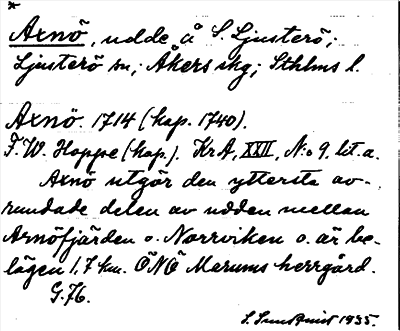 *
Axnö, udde å S. Ljusterö;
Ljusterö sn; Åkers skg; Sthlms l.
Axnö 1714 (kop. 1740).
F. W. Hoppe (kop.). KrA, XXII, N:o 9, lit. a.
Axnö utgör den yttersta av-
rundade delen av udden mellan
Arnöfjärden o. Norrviken o. är be-
lägen 1,7 km. ÖNÖ Marums herrgård.
G. 76.
S. Sundqvist 1935.